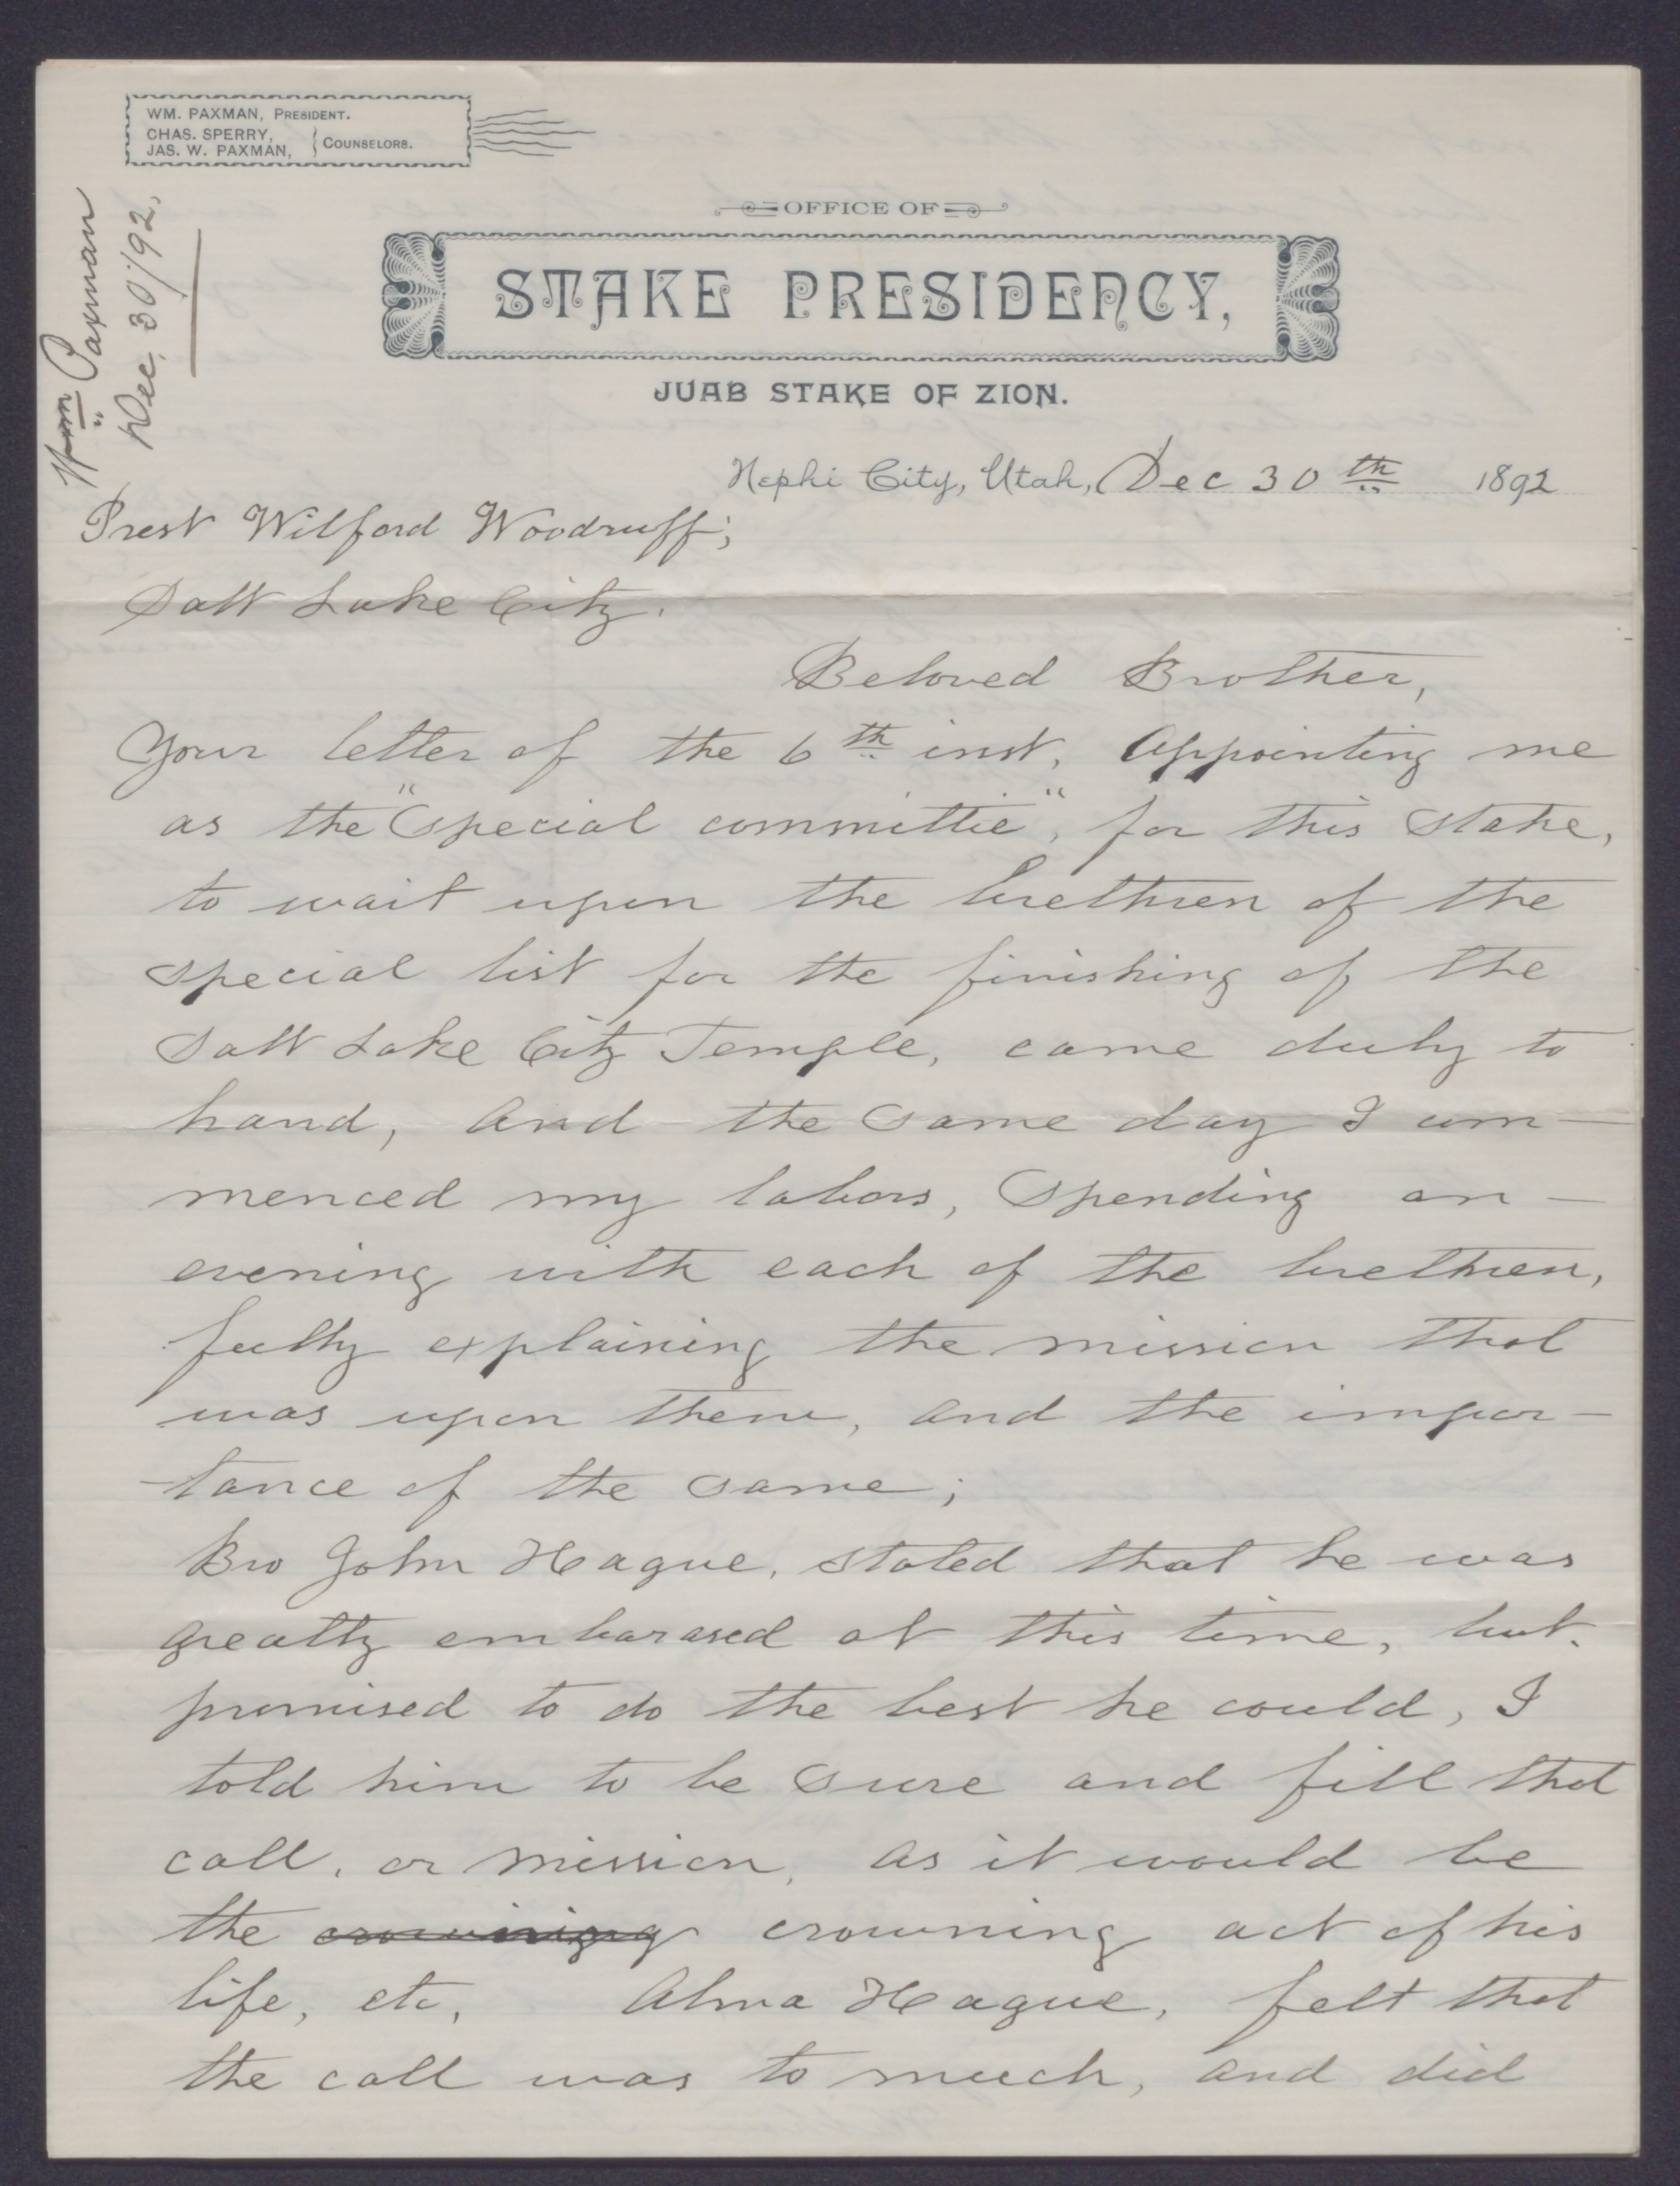 WM. PAXMAN, PRESIDENT.
CHAS. SPERRY,
JAS. W. PAXMAN, } COUNSELORS.
Wm Paxman
Dec. 30/92.
OFFICE OF
STAKE PRESIDENCY,
JUAB STAKE OF ZION.
Nephi City, Utah, Dec 30th 1892
Prest Wilford Woodruff;
Salt Lake City.
Beloved Brother,
Your letter of the 6th inst, appointing me
as the "special committie", for this stake,
to wait upon the brethren of the
special list for the finishing of the
Salt Lake City Temple, came duly to
hand, and the same day I com-
menced my labors, spending an-
evening with each of the brethren,
fully explaining the mission that
was upon them, and the impor-
-tance of the same;
Bro John Hague, stated that he was
greatly embarased at this time, but.
promised to do the best he could, I
told him to be sure and fill that
call, or mission, as it would be
the crowning crowning act of his
life, etc, Alma Hague, felt that
the call was to much, and did